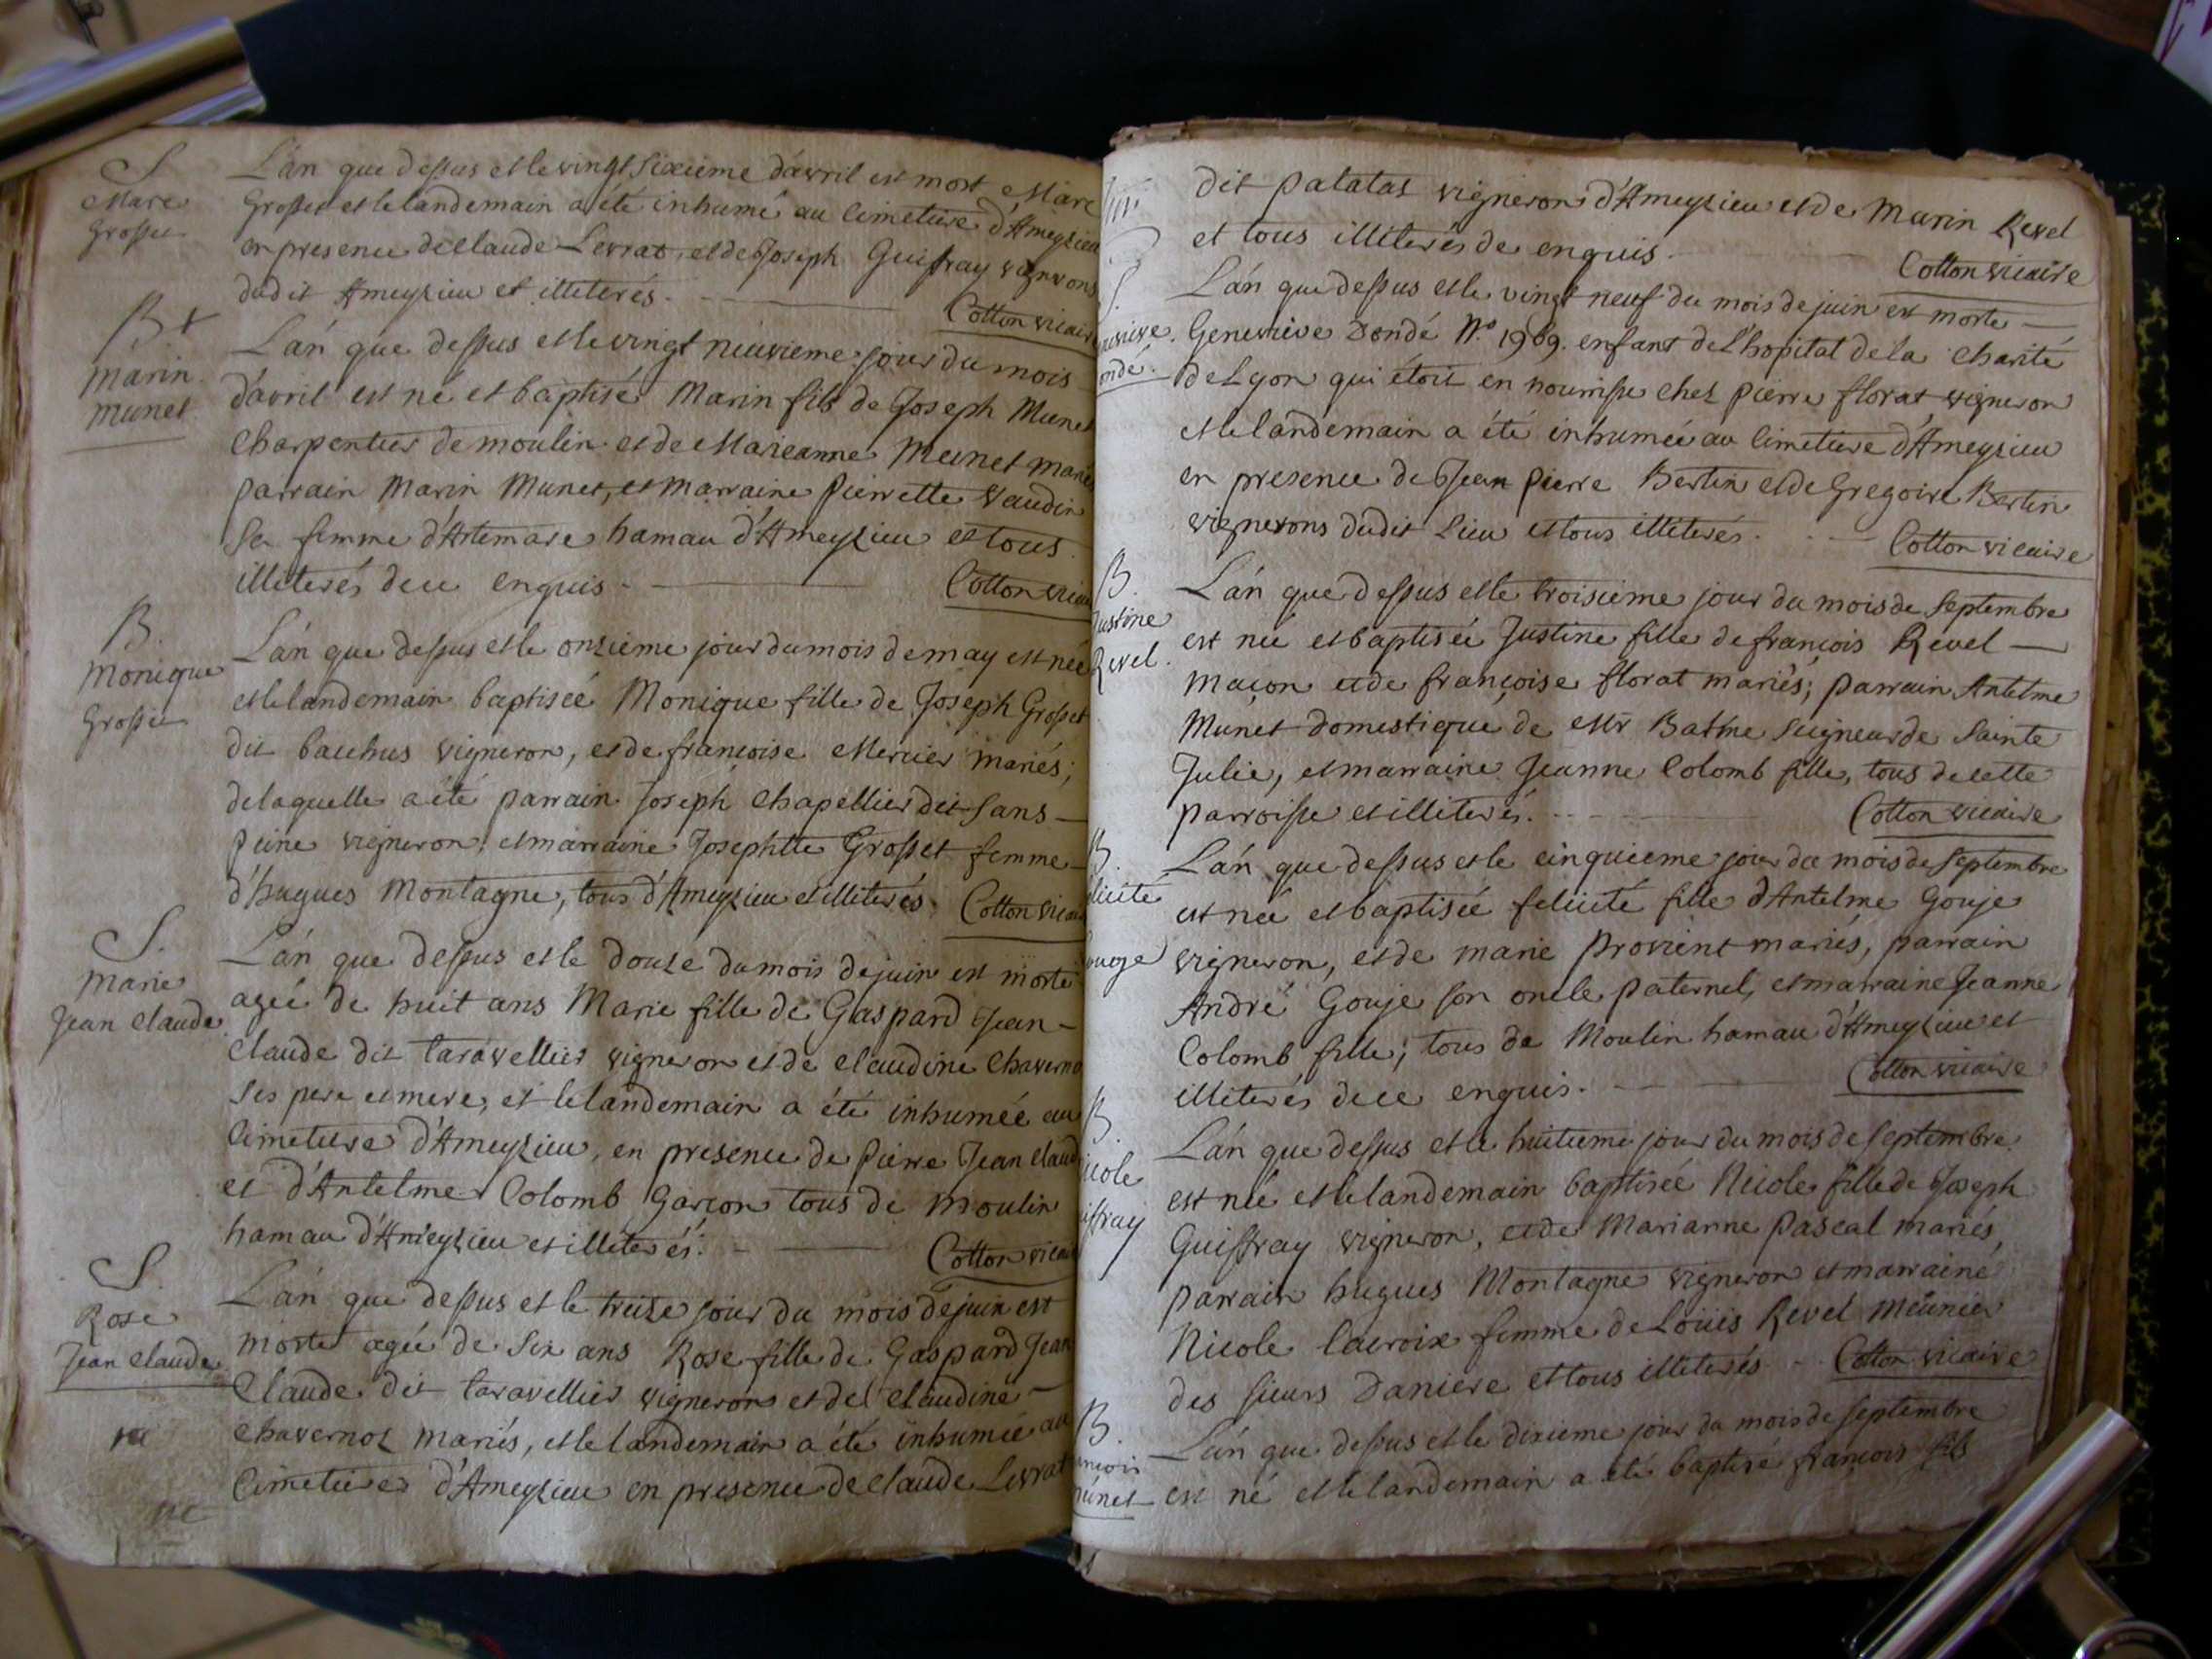 S.
Marc
Grosset
L'an que dessus et le vingt sixieme d'avril est mort Marc
Grosset et le landemain a été inhumé au cimetiere d'Ameyzieu
en presence de Claude Levrat, et de Joseph Guiffray vignerons
dudit Ameyzieu et illiterés.
Cotton vicaire
B +
Marin
Munet
L'an que dessus et le vingt neuvieme jour du mois
d'avril est né et baptisé Marin fils de Joseph Munet
Charpentier de moulin et de Marieanne Meunet mariés
parrain Marin Munet, et marraine Pierrette Vaudin
sa femme d'Artemare hamau d'Ameyzieu et tous
illiterés de ce enquis.
Cotton vicaire
B.
Monique
Grosset
L'an que dessus et le onzieme jour du mois de may est née
et le landemain baptiseé Monique fille de Joseph Grosset
dit bacchus vigneron, et de françoise Mercier mariés;
de laquelle a été parrain Joseph Chapellier dit Sans
peine vigneron; et marraine Josephtte Grosset femme
d'hugues Montagne, tous d'Ameyzieu et illiterés.
Cotton vicaire
S.
Marie
Jean Claude
L'an que dessus et le douze du mois de juin est morte
ageé de huit ans Marie fille de Gaspard Jean-
Claude dit taravellier vigneron et de Claudine Chaverno
ses pere et mere, et le landemain a été inhumée au
cimetiere d'Ameyzieu, en presence de pierre Jean Claude
et d'Antelme Colomb Garçon tous de Moulin
hamau d'Ameyzieu et illéterés.
Cotton vicaire
S.
Rose
Jean Claude
L'an que dessus et le treize jour du mois de juin est
morte ageé de six ans Rose fille de Gaspard Jean
Claude dit taravellier vigneron et de Claudine
Chavernoz mariés, et le landemain a été inhumée au
Cimetiere d'Ameyzieu en presence de Claude Levrat
dit patatas vigneron d'Ameyzieu et de Marin Revel
et tous illiterés de enquis.
Cotton vicaire
S.
ondé.
L'an que dessus et le vingt neuf du mois de juin est morte
Genevieve Dondé N.º 1969. enfant de l'hopital de la Charité
de Lyon qui étoit en nourrisse chez pierre florat vigneron
et le landemain a été inhumée au Cimetiere d'Ameyzieu
en presence de Jean pierre Bertin et de Gregoire Bertin
vignerons dudit Lieu et tous illiterés.
Cotton vicaire
B.
Justine
Revel.
L'an que dessus et le troisieme jour du mois de septembre
est neé et baptisée Justine fille de françois Revel
maçon et de françoise florat mariés; parrain Antelme
Munet domestique de Mr Batme seigneur de Sainte
Julie, et marraine Jeanne Colomb fille, tous de cette
parroisse et illiterés.
Cotton vicaire
B.
elicité
ouoje
L'an que dessus et le cinquieme jour du mois de septembre
est neé et baptiseé felicité fille d'Antelme Gouje
vigneron, et de marie provient mariés, parrain
André Gouje son oncle paternel, et marraine Jeanne
Colomb fille; tous de Moulin hamau d'Ameyzieu et
illiterés de ce enquis.
Cotton vicaire
B.
icole
iffray
L'an que dessus et le huitieme jour du mois de septembre
est neé et le landemain baptiseé Nicole fille de Joseph
Guiffray vigneron, et de Marianne pascal mariés,
parrain hugues Montagne vigneron et marraine
Nicole lacroix femme de Loüis Revel meûnier
des sieurs Daniere et tous illiterés.
Cotton vicaire
B.
ançois
unet
L'an que dessus et le dixieme jour du mois de septembre
est né et le landemain a été baptisé françois fils